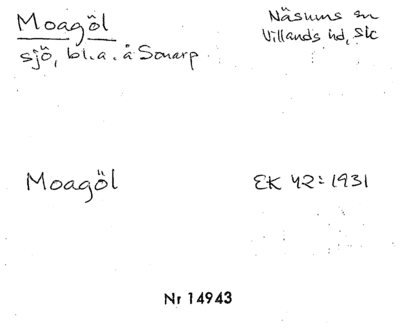 Moagöl
Näsums sn
sjö, bl.a. å Sonarp
Villands hd, Sk
Moagöl
EK 42:1931
Nr 14943